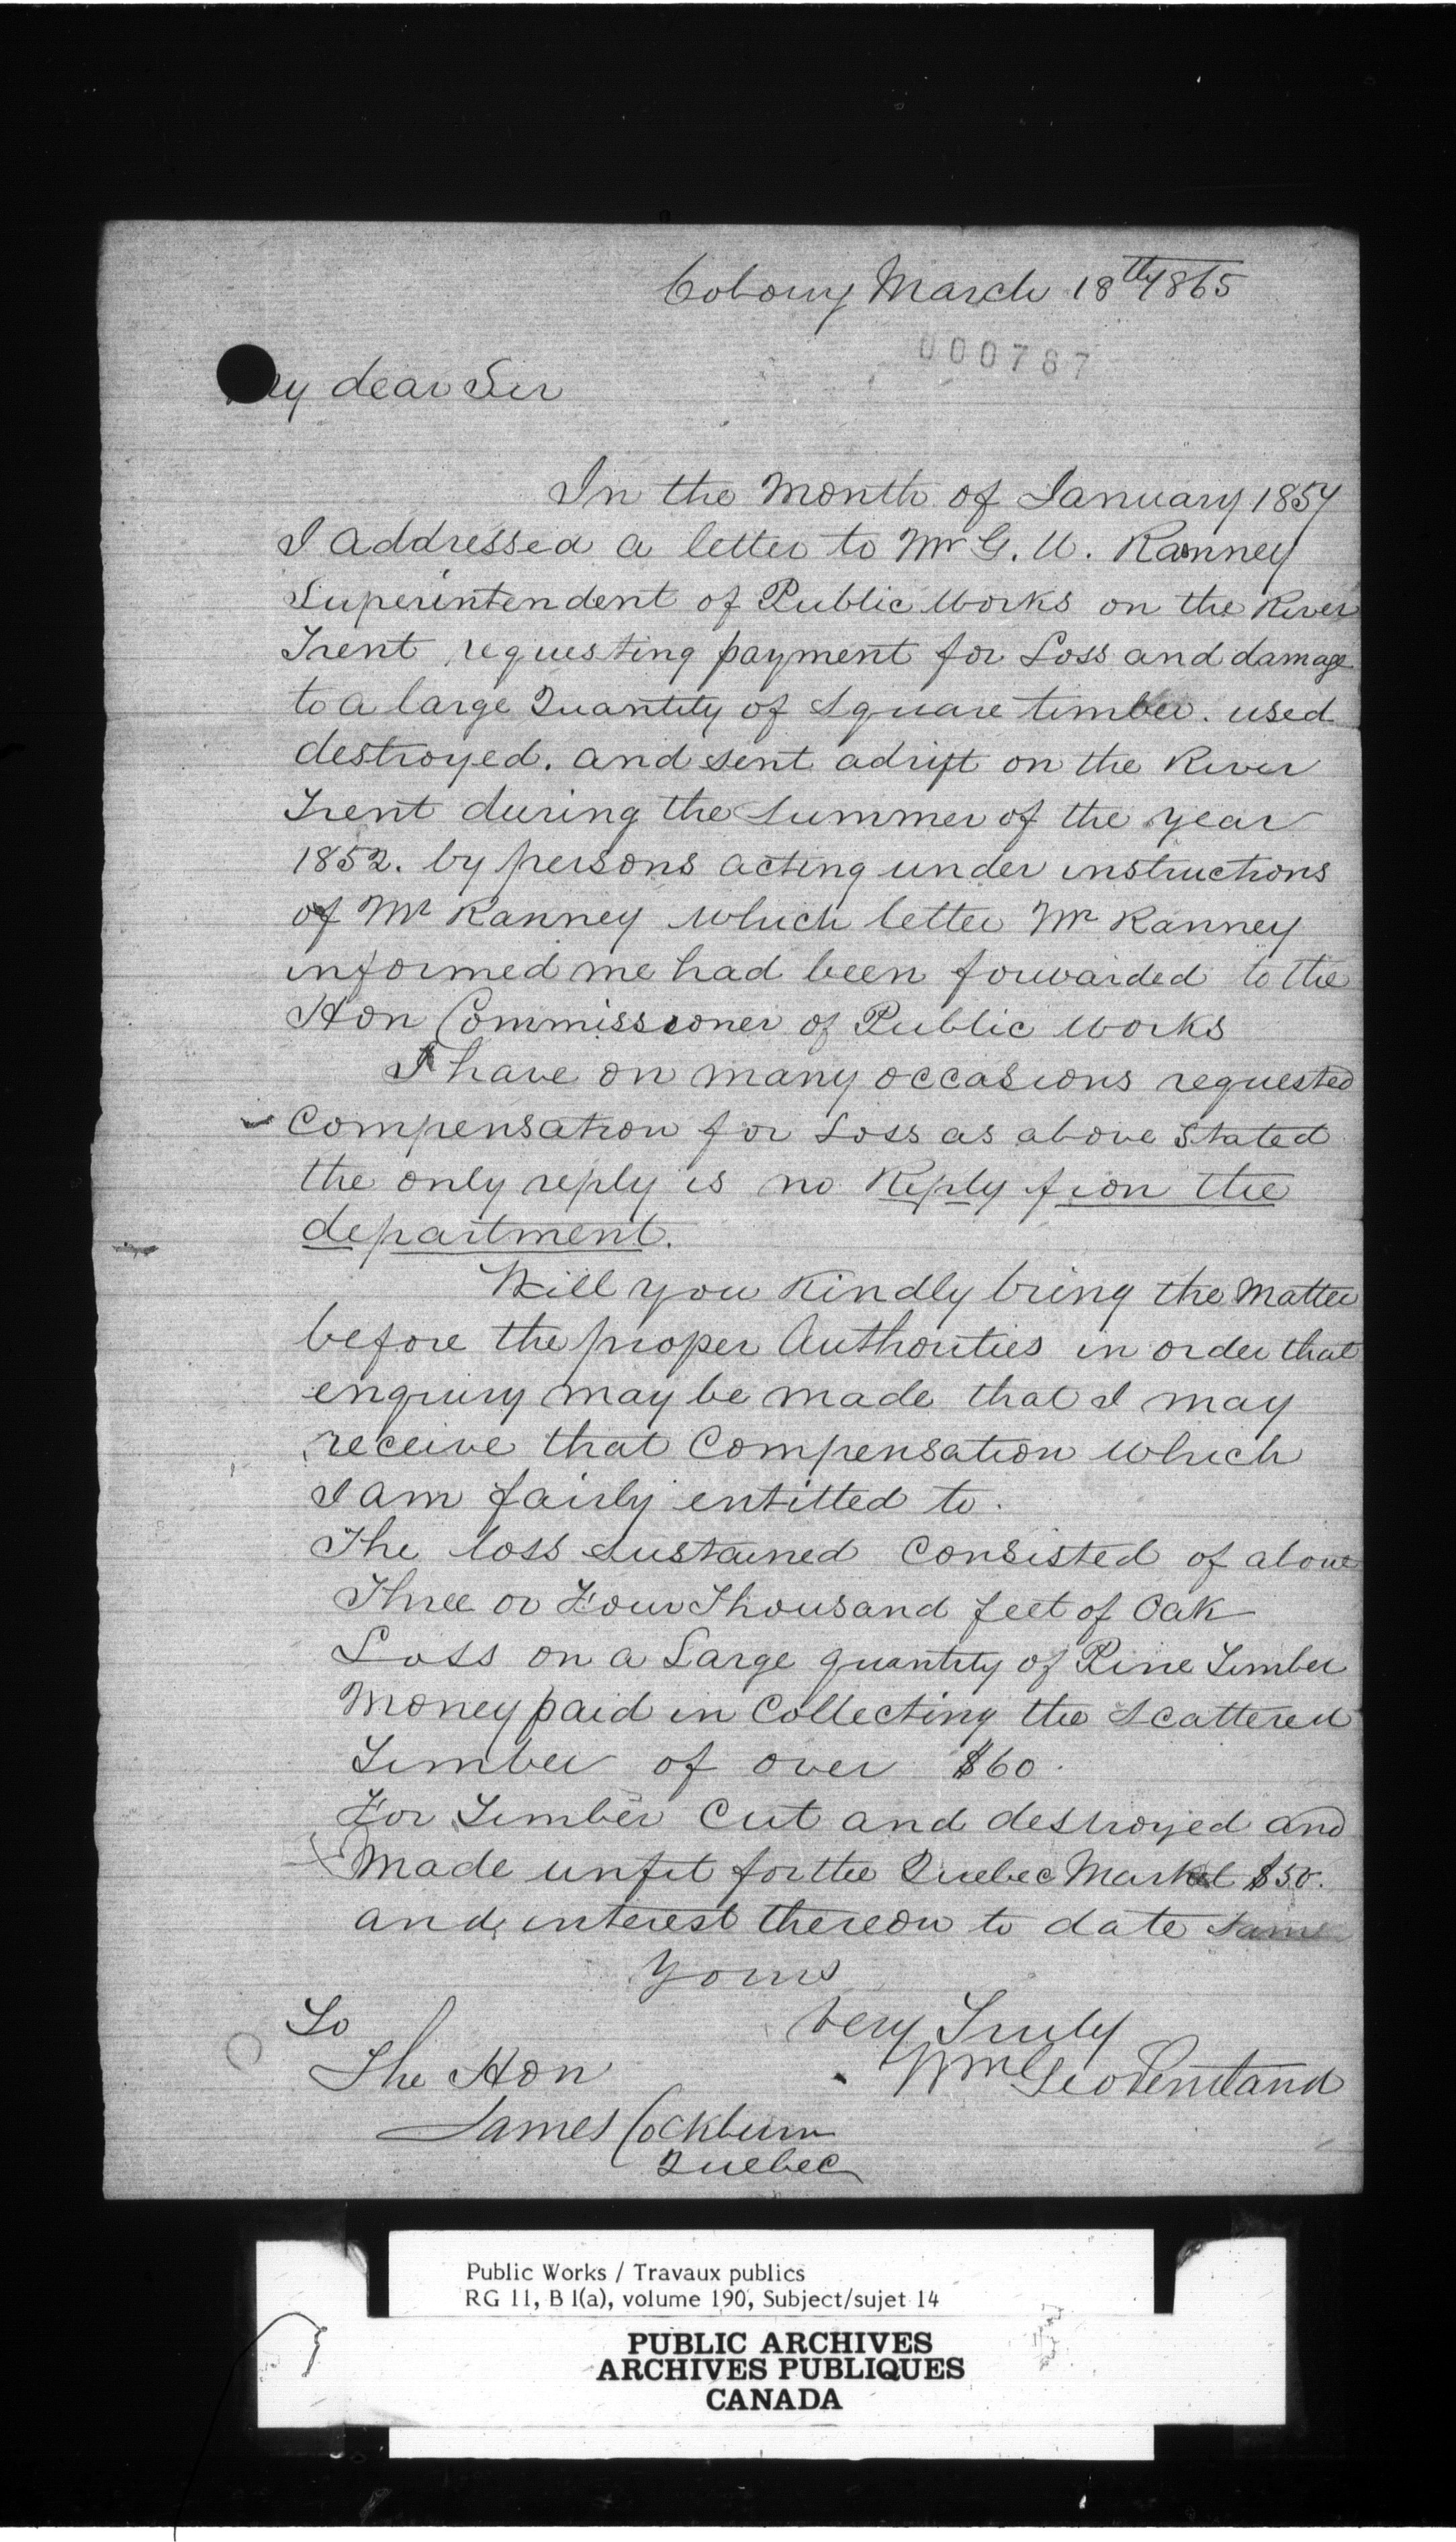 Cobourg March 18th 1865
000787
My dear Sir
In the Month of January 1857
I addressed a letter to Mr G. U. Ranney
Superintendent of Public Works on the River
Trent requesting payment for Loss and damage
to a large Quantity of Square timber. used
destroyed. and sent adrift on the River
Trent during the Summer of the year
1852. by persons acting under instructions
of Mr Ranney which letter Mr Ranney
informed me had been forwarded to the
Hon Commissioner of Public Works
I have on many occasions requested
Compensation for Loss as above Stated
the only reply is no Reply from the
department.
Will you Kindly bring the Matter
before the proper Authorities in order that
enquiry may be made that I may
receive that Compensation which
I am fairly entitled to.
The loss sustained Consisted of above
Three or Four Thousand feet of Oak
Loss on a Large quantity of Pine Timber
Money paid in Collecting the Scattered
Timber of over $60.
For Timber Cut and destroyed and
Made unfit for the Quebec Market $50.
and interest thereon to date
Yours
To Very Truly
The Hon Wm Geo
James Cockburn
Quebec
Public Works / Travaux publics
RG 11, B 1(a), volume 190, Subject/sujet 14
PUBLIC ARCHIVES
ARCHIVES PUBLIQUES
CANADA